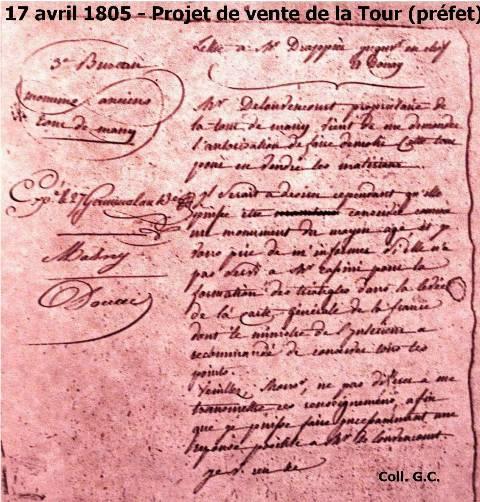 17 avril 1805 - Projet de vente de la Tour (préfet)
Lettre à Mr Drappier en chef
3e Bureau
monumens anciens
tour de many
Mr propriétaire de
la tour de many vient de me demander
l'autorisation de faire démolir cette tour
pour en vendre les matériaux
Exp. le 27 Germinal an 13
Il serait à désirer cependant qu'elle
puisse être conservée comme
un monument du moyen âge et je
vous prie de m'informer si elle n'a
pas servi à Mr pour la
formation des triangles dans la levée
de la carte générale de la france
dont le ministre de l'intérieur a
recommandé de conserver tous les
points.
Veuillez Monsr, ne pas différer à me
transmettre ces renseignemens afin
que je puisse faire incessamment une
réponse positive à Mr
Coll. G.C.